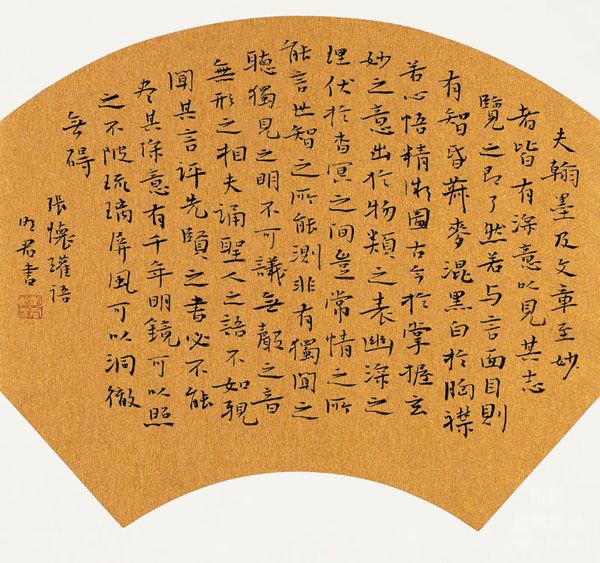 夫翰墨及文章至妙
者皆有深意以見其志
覽之即了然若与言面目則
有智昏菽麥混黑白於胸襟
若心悟精微圖古今於掌握玄
妙之意出於物類之表幽深之
理伏於杳冥之间豈常情之所
能言世智之所能測非有獨聞之
聴獨見之明不可議無聲之音
無形之相夫誦聖人之語不如親
聞其言評先賢之書必不能
盡其深意有千年明鏡可以照
之不陂琉璃屏風可以洞徹
無碍
張懷瓘語
君書